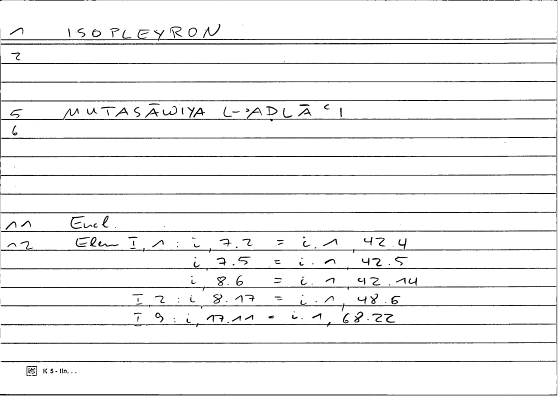 1 ISOPLEYRON
2
5 MUTASĀWIYA L-ʾAḌLĀʿI
6
11 Eucl.
12 Elem I, 1 : i, 7.2 = i.1, 42.4
i, 7.5 = i.1, 42.5
i, 8.6 = i.1, 42.14
I 2 : i, 8.17 = i.1, 48.6
I 9 : i, 17.11 = i.1, 68.22
K 5 - IIn. . .